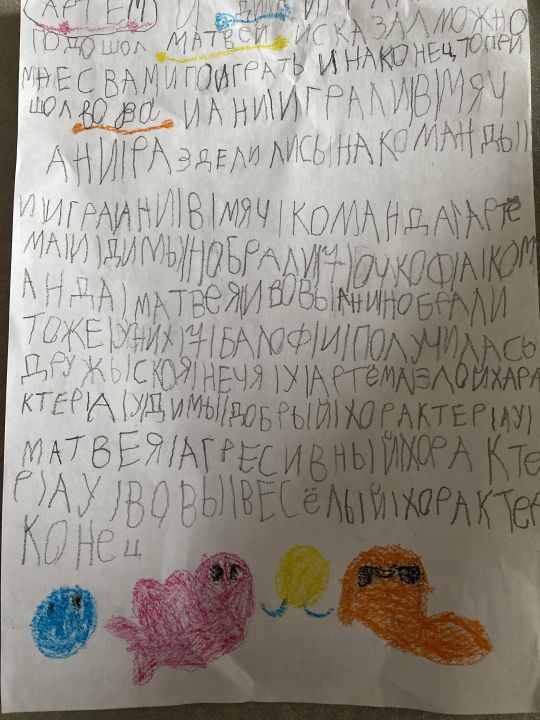 (АРТЕМ) И ДИМ ИГ
ПОДОШОЛ МАТВЕЙ ИСКАЗАЛ МОЖНО
МНЕ С ВАМИ ПОИГРАТЬ И НАКОНЕЦТО ПРИ
ШОЛ ВОВА И АНИ ИГРАЛИ|В|МЯЧ
АНИ|РАЗДЕЛИЛИСЬ|НА КОМАНДЫ||
И ИГРАЛИ|АНИ||В|МЯЧ|КОМАНДА|АРТЁ
МА|И|ДИМЫ|НОБРАЛИ|17|ОЧКОФ|А|КОМ
АНДА|МАТВЕЯ|И ВОВЫ|АНИ|НОБРАЛИ
ТОЖЕ|УНИХ|17|БАЛОФ|И|ПОЛУЧИЛАСЬ
ДРУЖЫСКОЯ|НЕЧЯ|У|АРТЁМА|ЗЛОЙ|ХАРА
КТЕР|А|УДИМЫ||ДОБРЫЙ|ХОРАКТЕР|АУ|
МАТВЕЯ|АГРЕСИВНЫЙ|ХОРАКТЕ
Р|АУ|ВОВЫ||ВЕСЁЛЫЙ|ХОРАКТЕР
КОНЕЦ